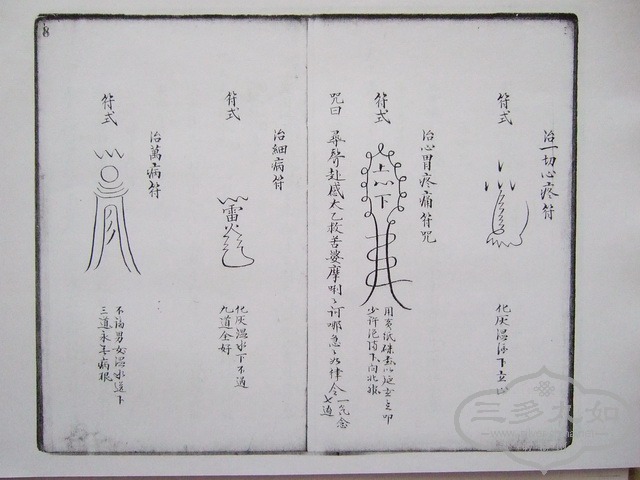 治一切心疼符
符式
化灰温酒下立止
治心胃疼痛符咒
符式
上心下
用黄紙硃
少許
咒曰
尋聲赴感太乙救苦婆摩唎唎訶哪急急如律令
一气念七遍
治細病符
符式
雷火
化灰温水下不過
九道全好
治萬病符
符式
不論男女温水送下
三道永手病根
三多九如
8